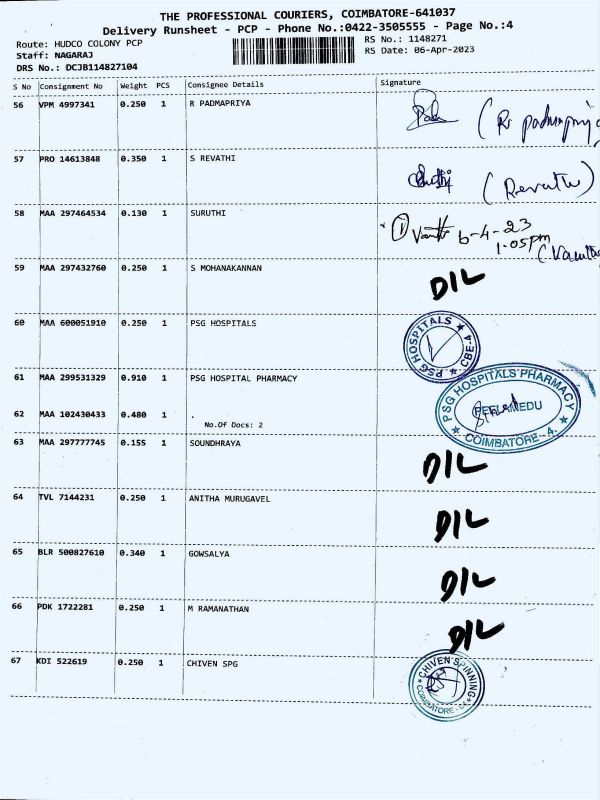 THE PROFESSIONAL COURIERS, COIMBATORE-641037
Delivery Runsheet - PCP - Phone No.:0422-3505555 - Page No.:4
Route: HUDCO COLONY PCP
RS No.: 1148271
Staff: NAGARAJ
RS Date: 06-Apr-2023
DRS No.: DCJB114827104
S No Consignment No Weight PCS Consignee Details Signature
56 VPM 4997341 0.250 1 R PADMAPRIYA
57 PRO 14613848 0.350 1 S REVATHI
(Revathi)
58 MAA 297464534 0.130 1 SURUTHI
6-4-23
1.05pm
59 MAA 297432760 0.250 1 S MOHANAKANNAN
D/L
60 MAA 600051910 0.250 1 PSG HOSPITALS
PSG HOSPITALS ★ CBE-4 ★
61 MAA 299531329 0.910 1 PSG HOSPITAL PHARMACY
PSG HOSPITALS PHARMACY
PEELAMEDU
★ COIMBATORE-4. ★
62 MAA 102430433 0.480 1 .
No.Of Docs: 2
63 MAA 297777745 0.155 1 SOUNDHRAYA
D/L
64 TVL 7144231 0.250 1 ANITHA MURUGAVEL
D/L
65 BLR 500827610 0.340 1 GOWSALYA
D/L
66 PDK 1722281 0.250 1 M RAMANATHAN
D/L
67 KDI 522619 0.250 1 CHIVEN SPG
CHIVEN SPINNING
COIMBATORE